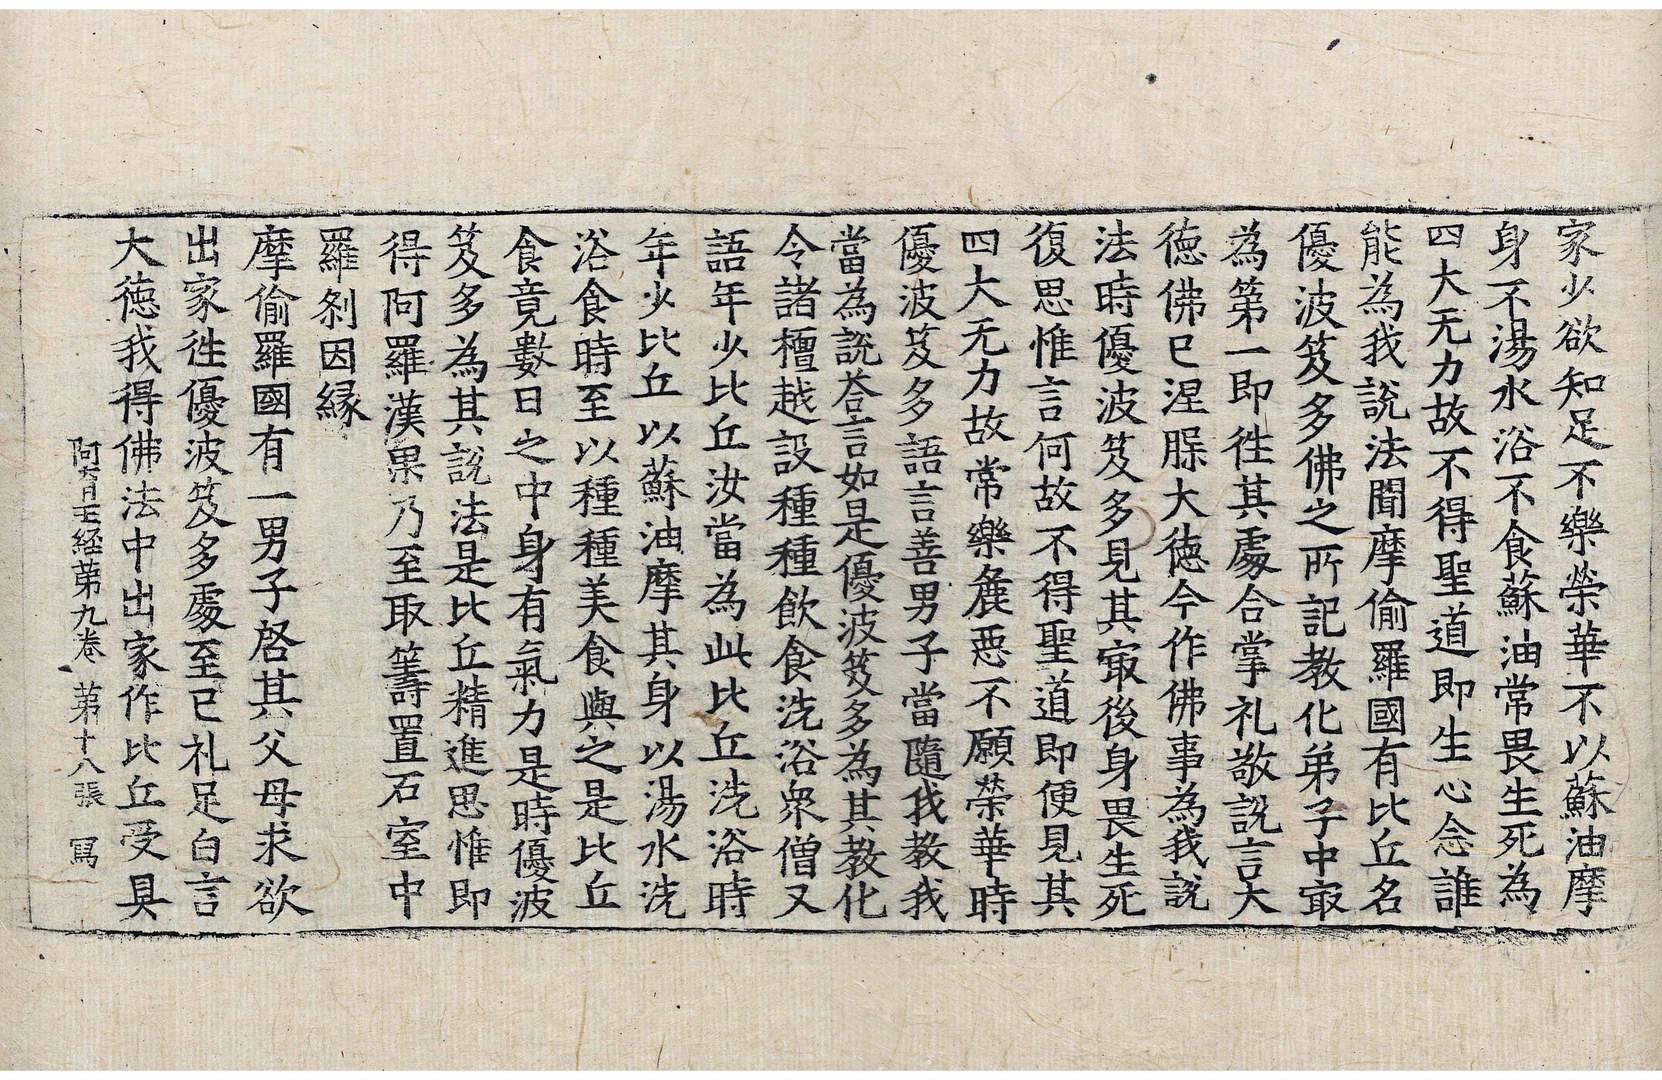 家少欲知足不樂榮華不以蘇油摩
身不湯水浴不食蘇油常畏生死為
四大无力故不得聖道即生心念誰
能為我說法聞摩偷羅國有比丘名
優波笈多佛之所記教化弟子中㝡
為第一即徃其處合掌礼敬說言大
徳佛已涅脲大徳今作佛事為我說
法時優波笈多見其㝡後身畏生死
復思惟言何故不得聖道即便見其
四大无力故常樂麁惡不願榮華時
優波笈多語言善男子當隨我教我
當為說荅言如是優波笈多為其教化
令諸檀越設種種飲食洗浴衆僧又
語年少比丘汝當為此比丘洗浴時
年少比丘以蘇油摩其身以湯水洗
浴食時至以種種美食與之是比丘
食竟數日之中身有氣力是時優波
笈多為其說法是比丘精進思惟即
得阿羅漢果乃至取籌置石室中
羅刹因縁
摩偷羅國有一男子啓其父母求欲
出家徃優波笈多處至已礼足白言
大徳我得佛法中出家作比丘受具
阿育王経苐九卷 第十八張 寫